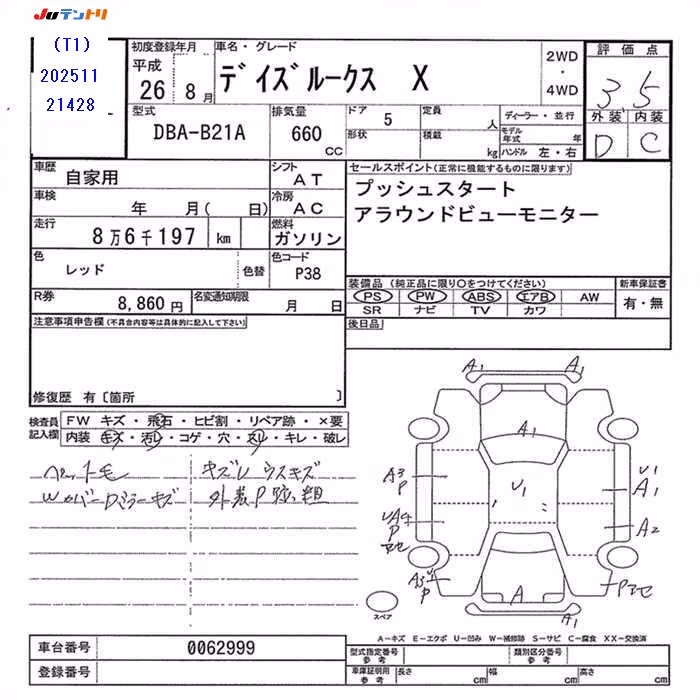 JUテントリ
(T1)
202511
21428
初度登録年月
平成
26 8月
車名・グレード
デイズルークス X
2WD
・
4WD
評価点
3 5
外装 内装
D C
型式
DBA-B21A
排気量
660
CC
ドア 5
形状
定員 人
積載 kg
ディーラー・並行
モデル年式 年
ハンドル 左・右
車歴
自家用
シフト
AT
車検
年 月( 日)
冷房
AC
走行
8万6千197 km
燃料
ガソリン
色
レッド
色替
色コード
P38
R券
8,860円
名変通知期限
月 日
セールスポイント(正常に機能するものに限ります)
プッシュスタート
アラウンドビューモニター
装備品 (純正品に限り○をつけてください)
PS PW ABS エアB AW
SR ナビ TV カワ
新車保証書
有・無
後日品
注意事項申告欄(不具合内容等は具体的に記入して下さい)
修復歴 有〔箇所 〕
検査員
記入欄
FW キズ・飛石・ヒビ割・リペア跡・×要
内装 キズ・汚レ・コゲ・穴・スレ・キレ・破レ
ペット毛
キズレ ウスキズ
WカバーDミラーキズ
外装P跡、粗
A1 A1
A1
A3
P
U1
U1
A1
A2
P
A
A1
スペア
A-キズ E-エクボ U-凹み W-補修跡 S-サビ C-腐食 XX-交換済
車台番号
0062999
登録番号
型式指定番号
参考
類別区分番号
参考
車庫証明用
参考
長さ cm
幅 cm
高さ cm